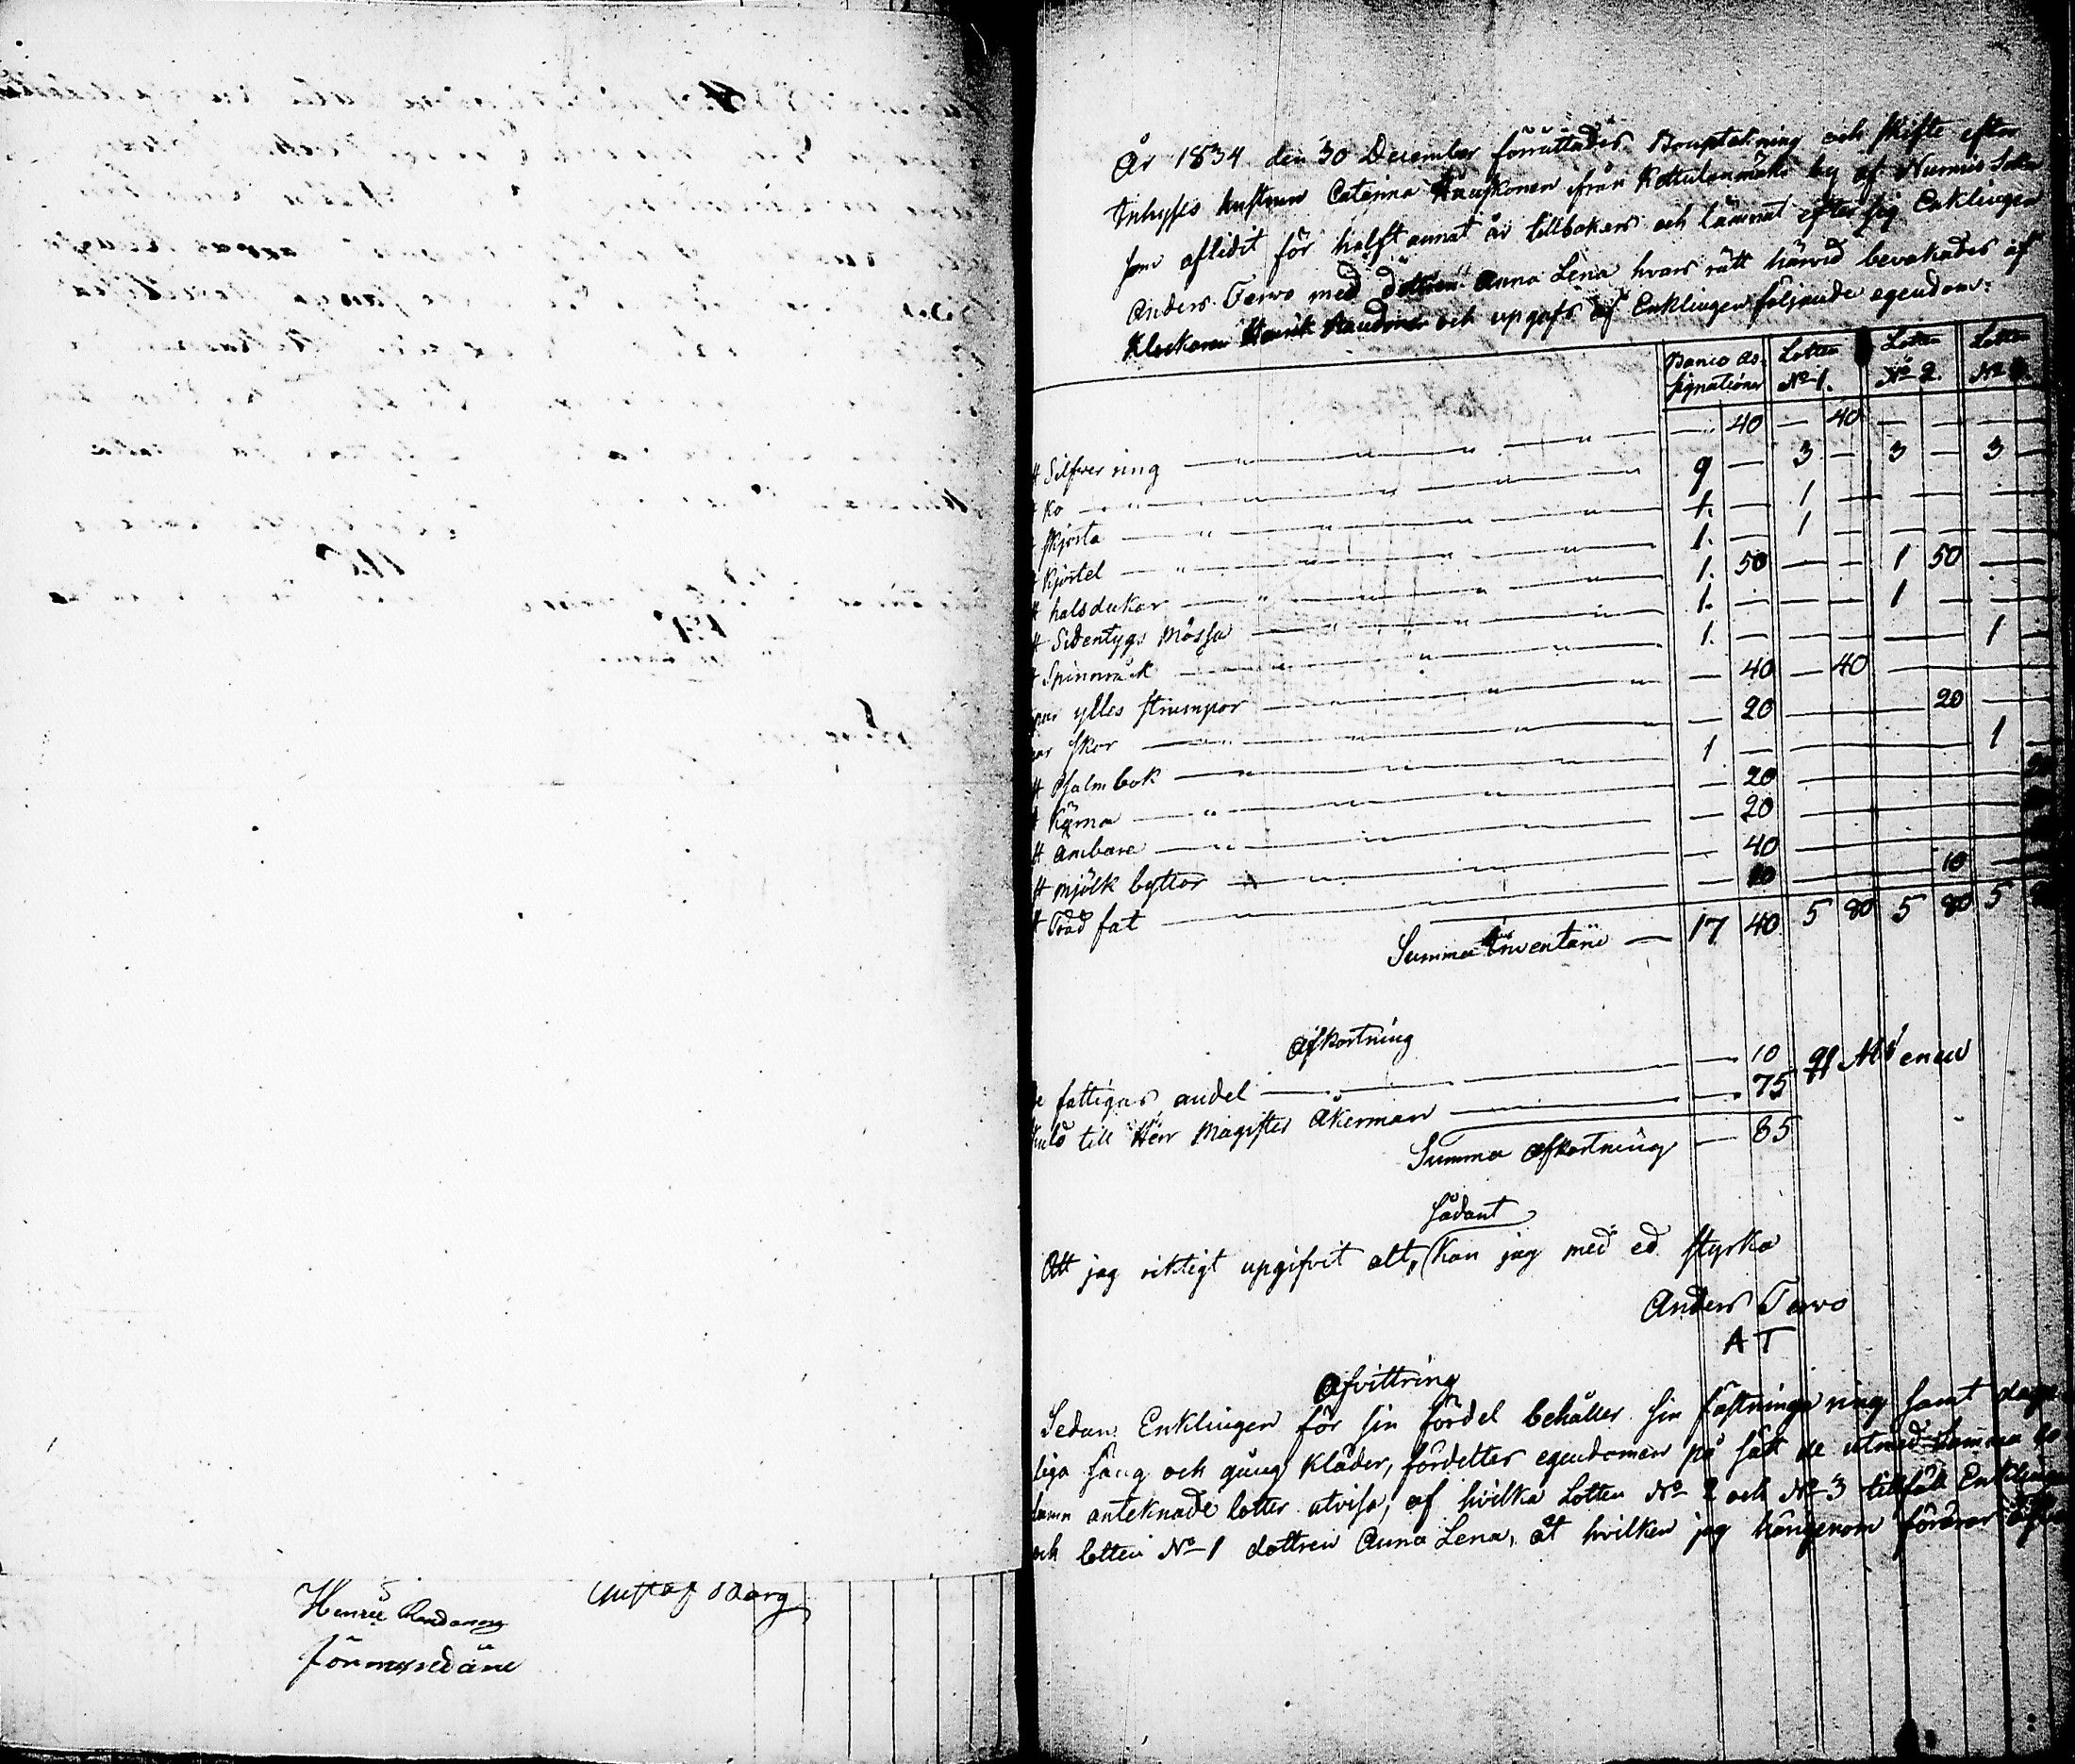 Henric
förmyndare
Gustaf
År 1834 den 30 December förrättades Bouptekning och skifte efter
Inhyses hustrun Caterina från by af Nurmis Sokn
som aflidit för halft annat år tillbakars och lämnat efter sig Enklingen
Anders Tervo med dottren Anna Lena hvars rätt härvid bevakades af
Klockaren Henrik och upgafs af Enklingen följande egendom:
Banco as- Lotten Lotten Lotten
signationer No 1. No 2. No
Silfver ring — 40 — 40 — — — —
Ko 9 — 3 — 3 — 3 —
skjorta 1. — 1 — — — — —
Kjortel 1. — 1 — — — — —
halsdukar 1. 50 — — 1 50 — —
Sidentygs Mössa 1. — — — 1 — — —
Spinnråck 1. — — — — — 1 —
par ylles strumpor — 40 — 40 — — — —
par skor — 20 — — — 20 — —
Psalmbok 1 — — — — — 1 —
Kärna — 20
Ämbare — 20
mjölk byttor — 40
Träd fat — 10 — — — 10 — —
Summa Inventarii — 17 40 5 80 5 80 5
Afkortning
De fattigas andel — 10
skuld till Herr Magister Åkerman — 75
Summa Afkortning — 85
sådant
Att jag riktigt upgifvit alt, kan jag med ed styrka
Anders Tervo
A T
Afvittring
Sedan Enklingen för sin fördel behåller sin fästninga ring samt dage-
liga säng och gång kläder, fördeltes egendomen på sätt de utmed
anteknade lotter utvisa; af hvilka Lotten No 2 och No 3 tillföll Enklingen
och lotten No 1 dottren Anna Lena, åt hvilken jag härigenom